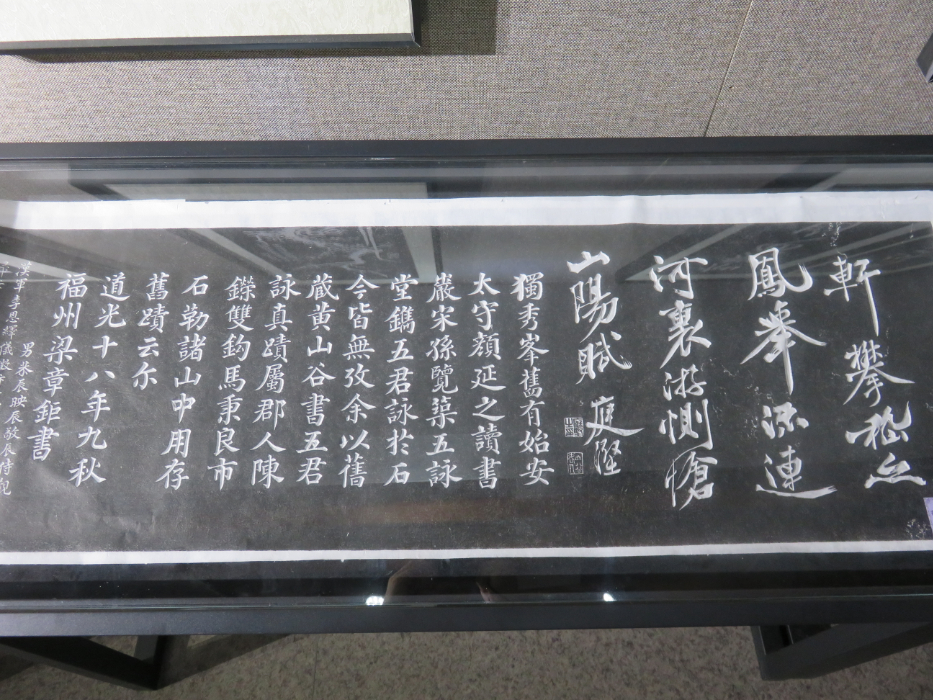 軒攀嵇亦
鳳舉流連
河裏游惻愴
山陽賦 庭堅
獨秀峯舊有始安
太守顏延之讀書
巖宋孫覽築五詠
堂鐫五君詠於石
今皆無攷余以舊
藏黃山谷書五君
詠真蹟屬郡人陳
鑅雙鉤馬秉良市
石勒諸山中用存
舊蹟云尔
道光十八年九秋
福州梁章鉅書
男恭辰映辰敬辰侍觀
漢軍李恩繹